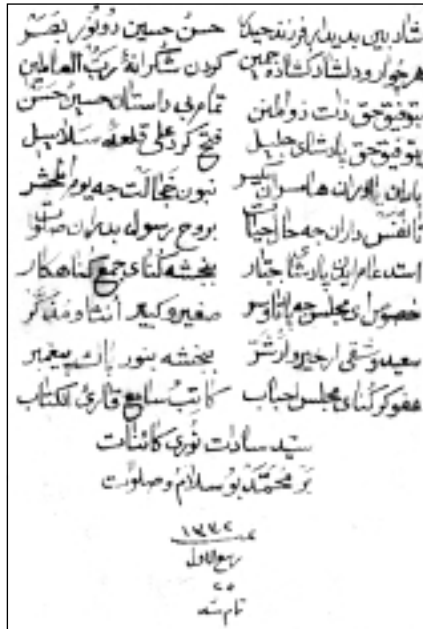 شاد بین بدیدار فرزند جیک حسن حسین دو نور بصر
هر چوار و دلشاد کشاد جمین کردن شکرانهٔ رب العالمین
بتوفیق حق ذات ذوالمنن تمام بی داستان حسین حسن
بتوفیق حق پادشای جلیل فتح کرد علی قلعهٔ سلاسیل
یاران یاوران هامسران نبون خجالت جه یوم المحشر
تا نفس داران جه حال حیات بروح رسول بدران صلوات
استدعام این پادشا جبار ببخشه گنای جمع گناهکار
خصوص ای مجلس جه صغیر و کبیر انشا و مذکر
سعید و شقی ار خیر و ار شر ببخشه بنور پاک پیغمبر
عفو کر گنای مجلس احباب کاتب سامع قاری الکتاب
سید سادات نوری کائنات
بر محمد بو سلام و صلوات
ربیع الاول
٢٥
تمام شد